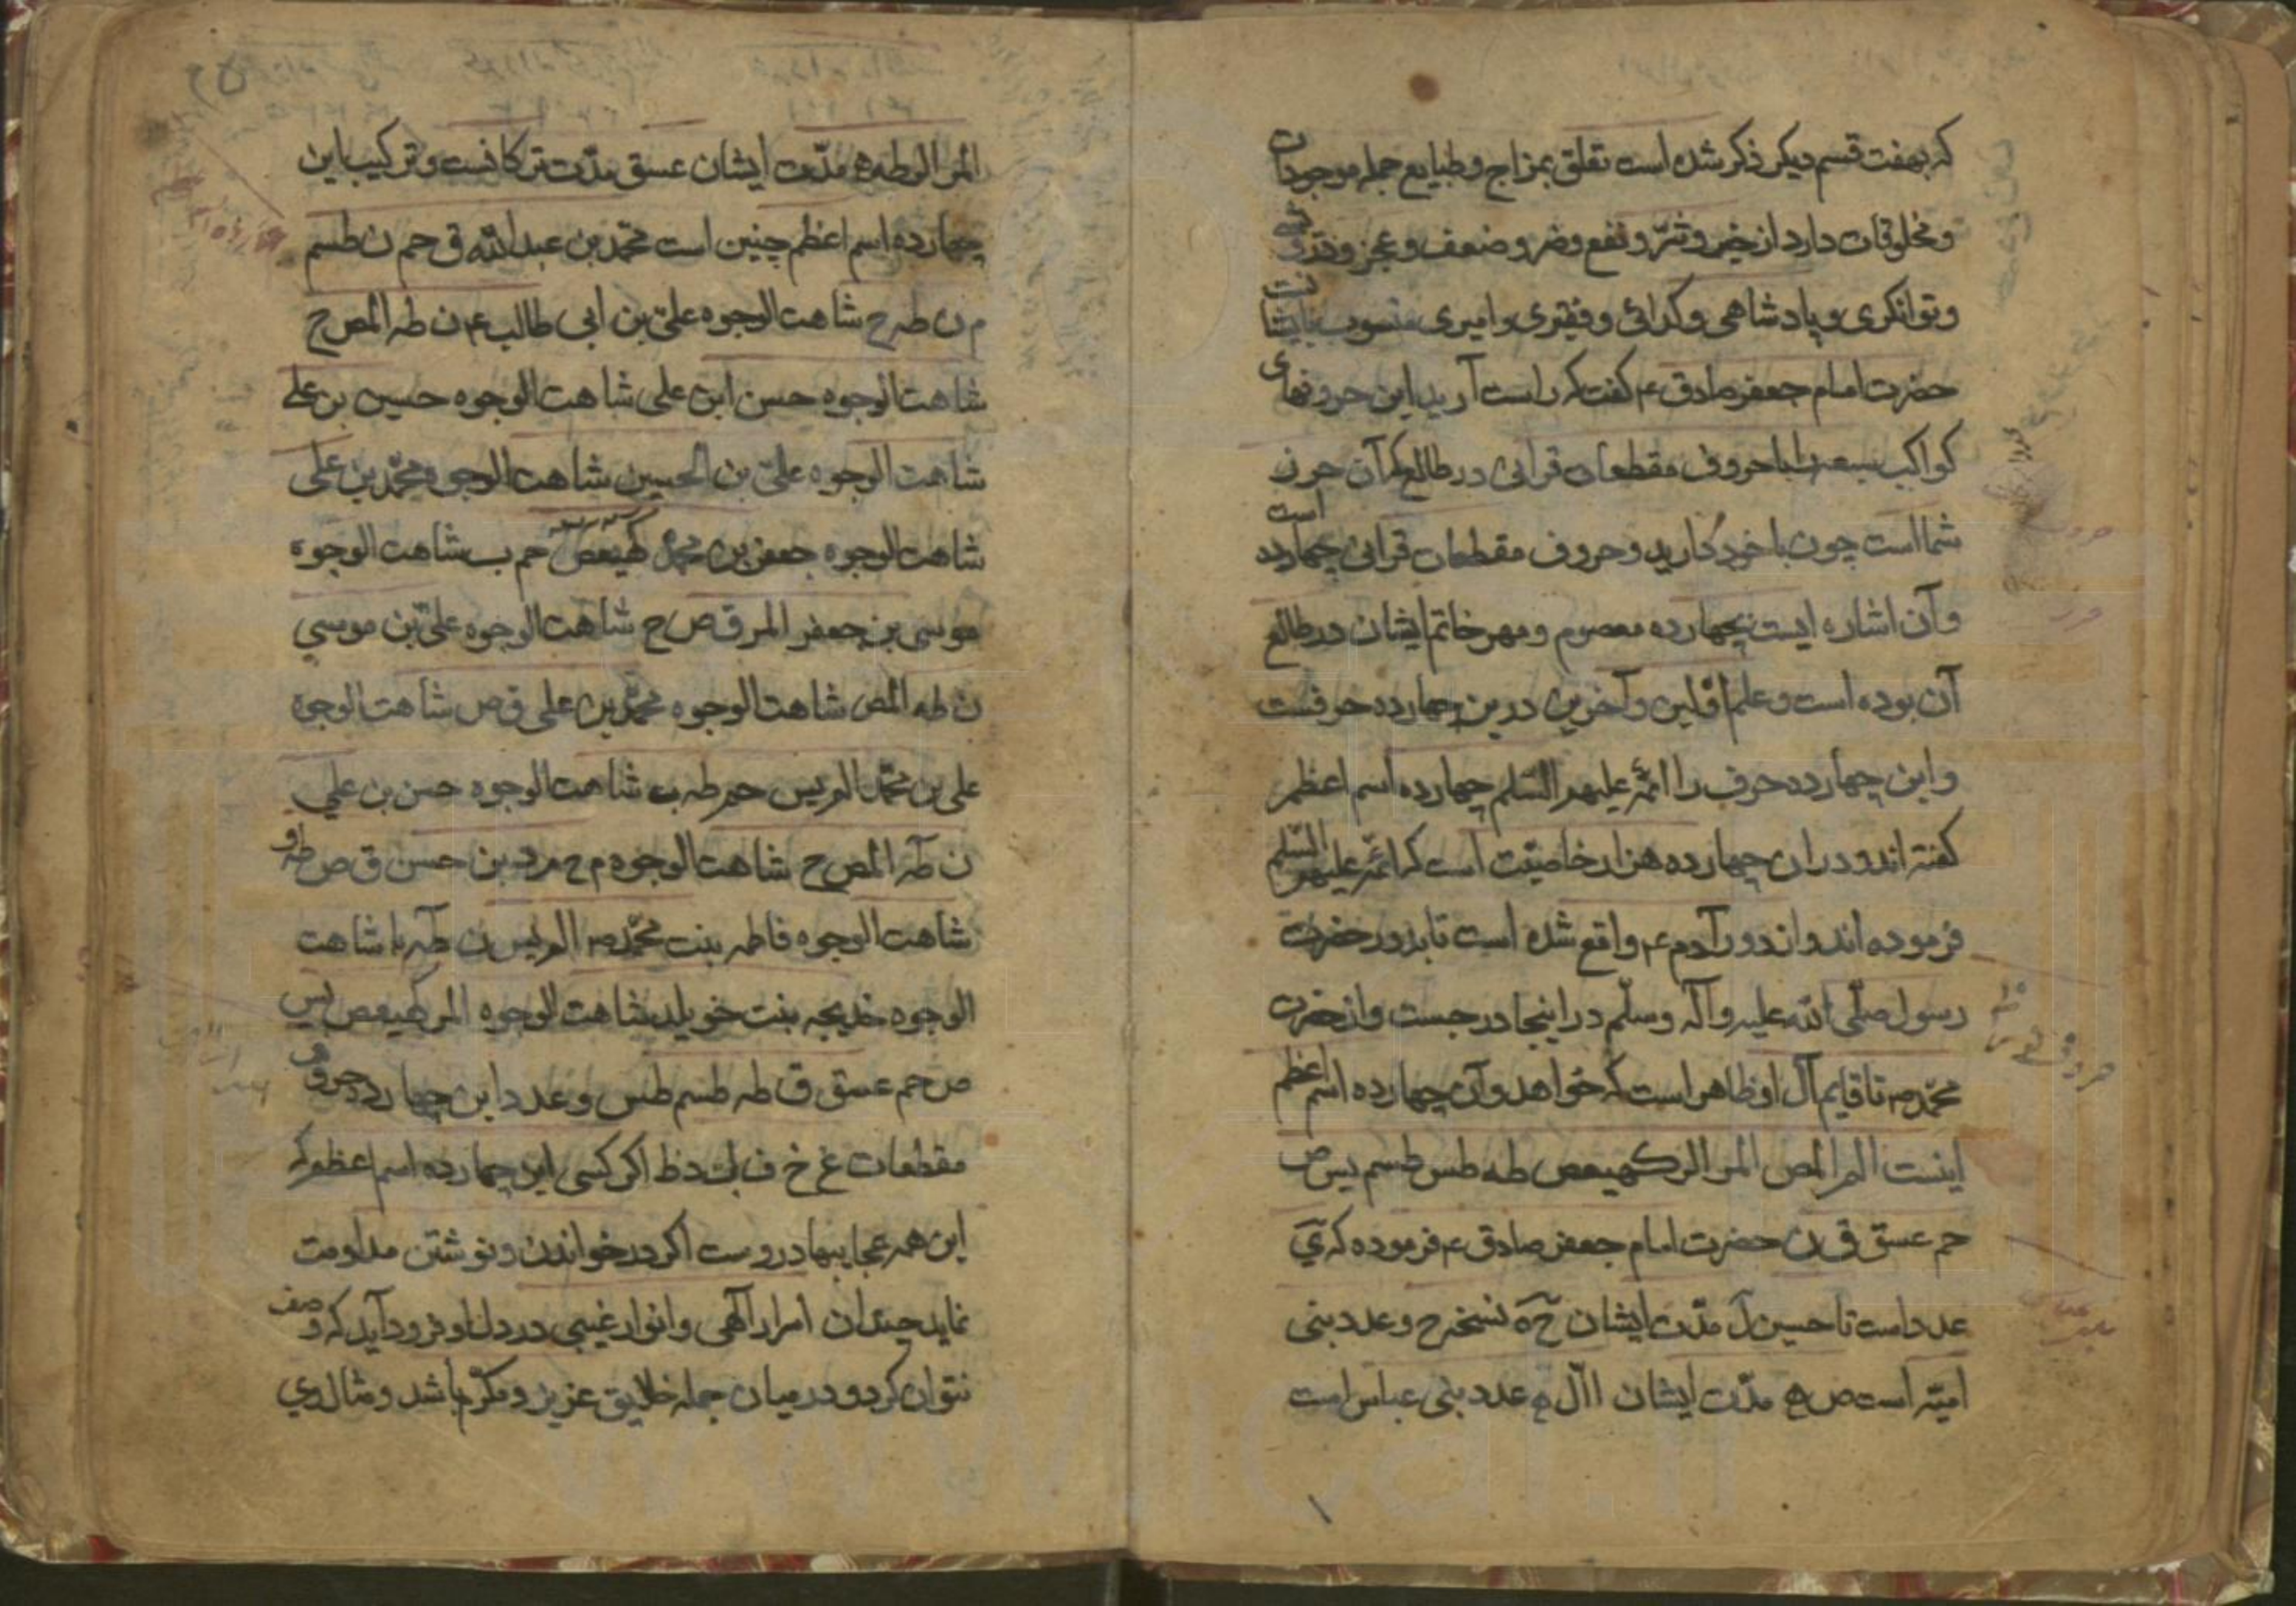 که بهفت قسم دیکر ذکر شده است تعلق بمزاج و طبایع جمله موجودات
و مخلوقات دارد از خیر و شرّ و نفع و ضر و ضعف و عجز و قدرت
و توانکری و پادشاهی و کدائی و فقیری و امیری منسوب بایشانست
حضرت امام جعفر صادق ع کفت که راست آرید این حروفهای
کواکب سبعه را با حروف مقطعات قرانی در طالع که آن حرز
شما است چون با خود دارید و حروف مقطعات قرانی چهارده است
و آن اشاره ایست بچهارده معصوم و مهر خاتم ایشان در طالع
آن بوده است و علم اوّلین و آخرین درین چهارده حرفست
و این چهارده حرف را ائمّه علیهم السّلم چهارده اسم اعظم
کفته اند و در ان چهارده هزار خاصیّت است که ائمّه علیهم السّلم
فرموده اند و از دور آدم ع واقع شده است تا بدور حضرت
رسول صلّی الله علیه وآله وسلّم در اینجا درجست و از حضرت
محمّد ص تا قایم آل او ظاهر است که خواهد و آن چهارده اسم اعظم
اینست الم المص المر الر کهیعص طه طس طسم یس ص
حم عسق ق ن حضرت امام جعفر صادق ع فرموده که یَ
عدد است تا حسین لَ مدّت ایشان حَ هَ نسخه ح و عدد بنی
امیّه است ص ه مدّت ایشان االَ م عدد بنی عباس است
المر الر طه ه مدّت ایشان عسق مدّت ترکانست و ترکیب این
چهارده اسم اعظم چنین است محمّد بن عبدالله ق حم ن طسم
م ن طه ح شاهت الوجوه علیّ بن ابی طالب ع ن طه المص ح
شاهت الوجوه حسن ابن علی شاهت الوجوه حسین بن علی
شاهت الوجوه علیّ بن الحسین شاهت الوجوه محمّد بن علی
شاهت الوجوه جعفر بن محمّد کهیعص حم ب شاهت الوجوه
موسی بن جعفر المر ق ص ح شاهت الوجوه علیّ بن موسی
ن طه المص شاهت الوجوه محمّد بن علی ق ص شاهت الوجوه
علی بن محمّد الم یس حم طه ب شاهت الوجوه حسن بن علی
ن طه المص ح شاهت الوجوه م ح م د بن حسن ق ص طه و
شاهت الوجوه فاطمه بنت محمّد ص الم یس ن طه با شاهت
الوجوه خدیجه بنت خویلد شاهت الوجوه المر کهیعص یس
ص حم عسق ق طه طسم طس و عدد این چهارده حروف
مقطعات غ خ ف اکر کسی این چهارده اسم اعظم که
این همه عجایبها دروست اکر در خواندن و نوشتن مداومت
نماید چندان اسرار آلهی و انوار غیبی در دل او فرود آید که وصف
نتوان کرد و در میان جمله خلایق عزیز و مکرّم باشد و مثال وی